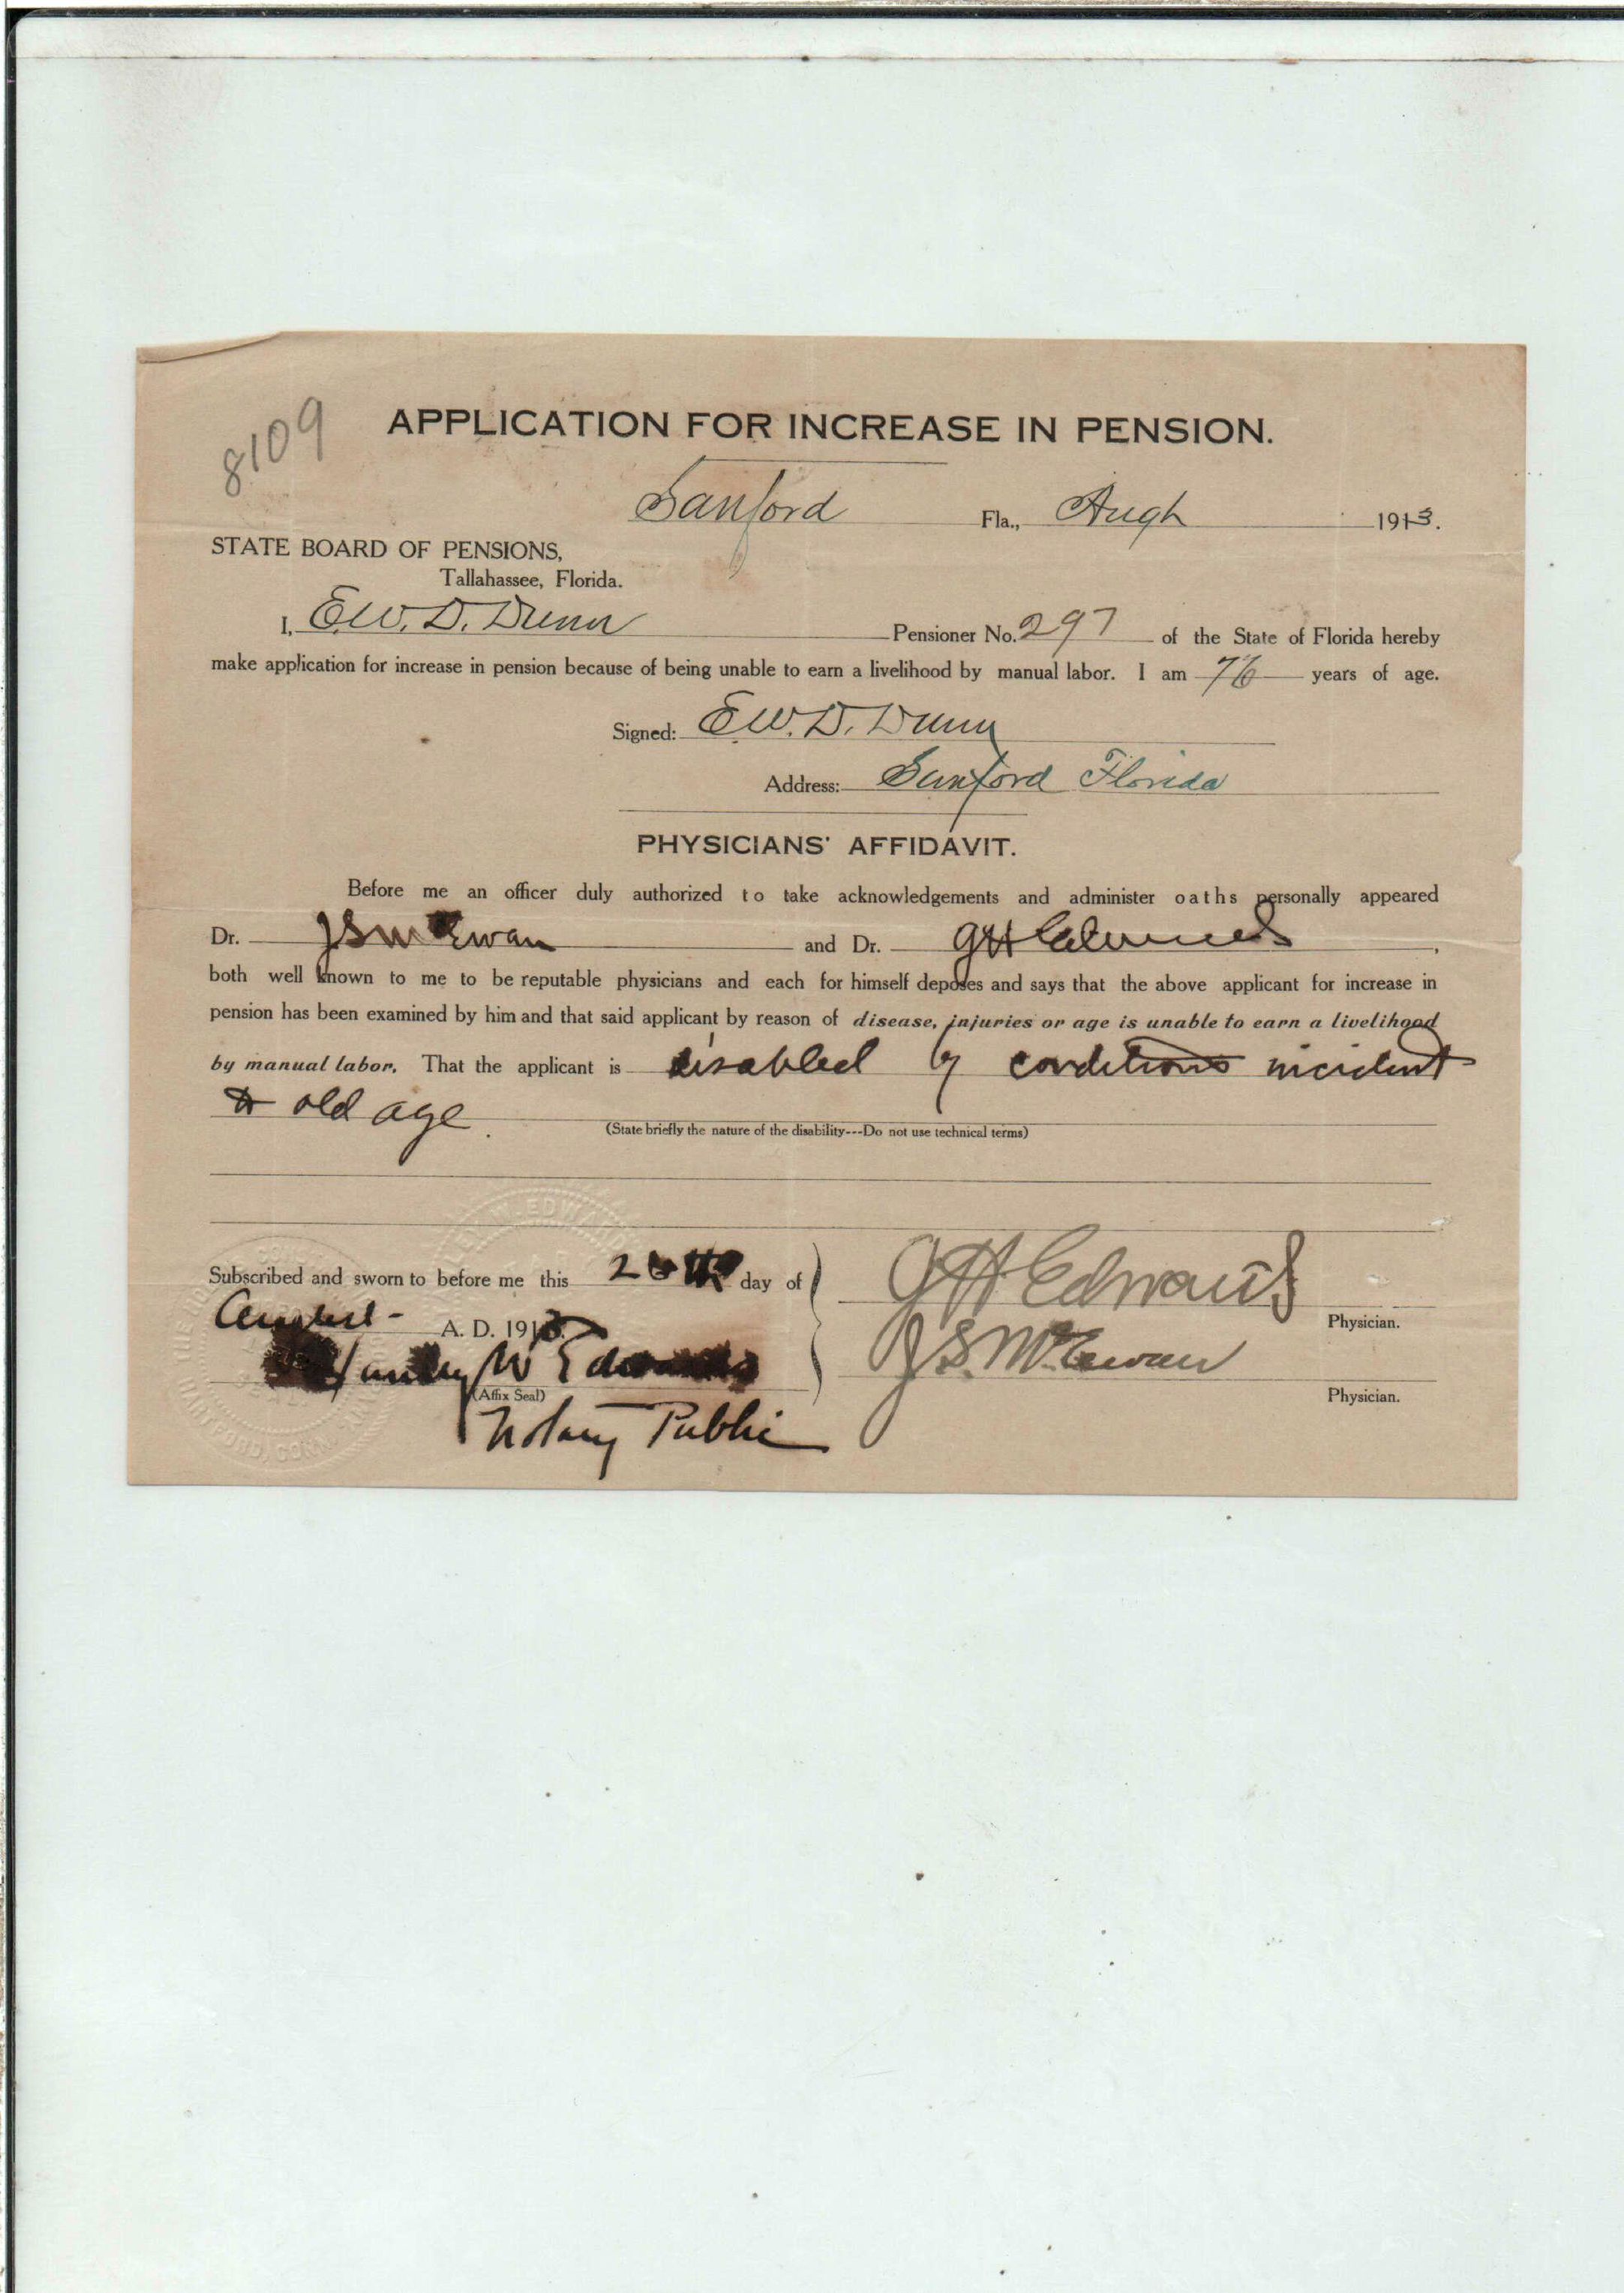 8109
APPLICATION FOR INCREASE IN PENSION.
Sanford Fla., Augh 1913.
STATE BOARD OF PENSIONS,
Tallahassee, Florida.
I, E.W. D. Dunn Pensioner No. 297 of the State of Florida hereby
make application for increase in pension because of being unable to earn a livelihood by manual labor. I am 76 years of age.
Signed: E.W. D. Dunn
Address: Sanford Florida
PHYSICIANS' AFFIDAVIT.
Before me an officer duly authorized to take acknowledgements and administer oaths personally appeared
Dr. J S McEwan and Dr. G H Edwards,
both well known to me to be reputable physicians and each for himself deposes and says that the above applicant for increase in
pension has been examined by him and that said applicant by reason of disease, injuries or age is unable to earn a livelihood
by manual labor. That the applicant is disabled by conditions incident
to old age.
(State briefly the nature of the disability---Do not use technical terms)
W. EDWARD
Subscribed and sworn to before me this day of
August A. D. 1913.
G H Edwards
Physician.
J. S. McEwan
Physician.
W Edwards
(Affix Seal)
Notary Public
HARTFORD, CONN.